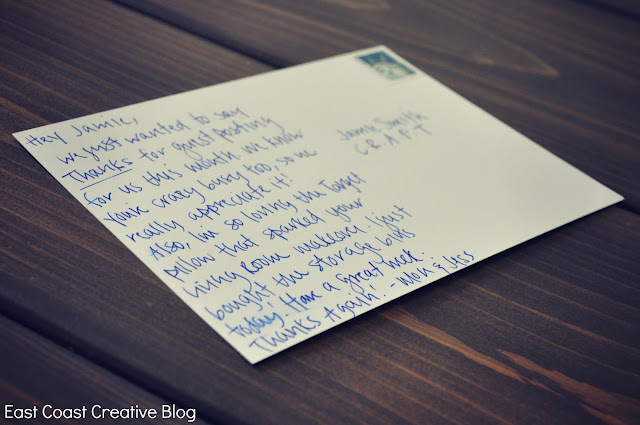 Hey Jamie,
we just wanted to say
Thanks for guest posting
for us this month we know
your crazy busy too, so we
really appreciate it!
Also, Im so loving the Target
pillow that sparked your
living room makeover. I just
bought the storage bins
today. Have a great week.
Thanks Again! - Mon & Jess
Jamie Smith
C.R.A.F.T
East Coast Creative Blog